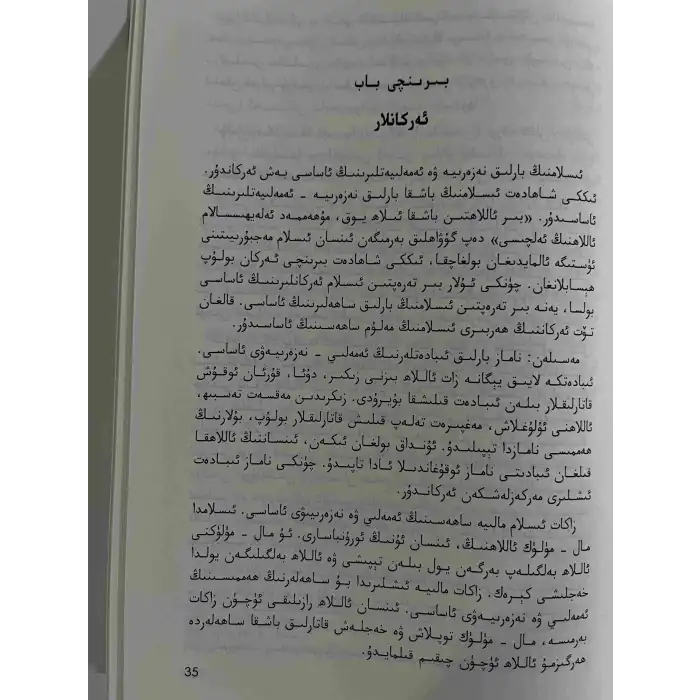 بىرىنچى باب
ئەركانلار
ئىسلامنىڭ بارلىق نەزەرىيە ۋە ئەمەلىيەتلىرىنىڭ ئاساسى بەش ئەركاندۇر.
ئىككى شاھادەت ئىسلامنىڭ باشقا بارلىق نەزەرىيە - ئەمەلىيەتلىرىنىڭ
ئاساسىدۇر. «بىر ئاللاھتىن باشقا ئىلاھ يوق، مۇھەممەد ئەلەيھىسسالام
ئاللاھنىڭ ئەلچىسى» دەپ گۇۋاھلىق بەرمىگەن ئىنسان ئىسلام مەجبۇرىيىتىنى
ئۈستىگە ئالمايدىغان بولغاچقا، ئىككى شاھادەت بىرىنچى ئەركان بولۇپ
ھېسابلانغان. چۈنكى ئۇلار بىر تەرەپتىن ئىسلام ئەركانلىرىنىڭ ئاساسى
بولسا، يەنە بىر تەرەپتىن ئىسلامنىڭ بارلىق ساھەلىرىنىڭ ئاساسى. قالغان
تۆت ئەركاننىڭ ھەربىرى ئىسلامنىڭ مەلۇم ساھەسىنىڭ ئاساسىدۇر.
مەسىلەن: ناماز بارلىق ئىبادەتلەرنىڭ ئەمەلىي - نەزەرىيەۋى ئاساسى.
ئىبادەتكە لايىق يېگانە زات ئاللاھ بىزنى زىكىر، دۇئا، قۇرئان ئوقۇش
قاتارلىقلار بىلەن ئىبادەت قىلىشقا بۇيرۇدى. زىكىردىن مەقسەت تەسبىھ،
ئاللاھنى ئۇلۇغلاش، مەغپىرەت تەلەپ قىلىش قاتارلىقلار بولۇپ، بۇلارنىڭ
ھەممىسى نامازدا تېپىلىدۇ. ئۇنداق بولغان ئىكەن، ئىنساننىڭ ئاللاھقا
قىلغان ئىبادىتى ناماز ئوقۇغاندىلا ئادا تاپىدۇ. چۈنكى ناماز ئىبادەت
ئىشلىرى مەركەزلەشكەن ئەركاندۇر.
زاكات ئىسلام مالىيە ساھەسىنىڭ ئەمەلىي ۋە نەزەرىيىۋى ئاساسى. ئىسلامدا
مال - مۈلۈك ئاللاھنىڭ، ئىنسان ئۇنىڭ ئورۇنباسارى. ئۇ مال - مۈلۈكنى
ئاللاھ بەلگىلەپ بەرگەن يول بىلەن تېپىشى ۋە ئاللاھ بەلگىلىگەن يولدا
خەجلىشى كېرەك. زاكات مالىيە ئىشلىرىدا بۇ ساھەلەرنىڭ ھەممىسىنىڭ
ئەمەلىي ۋە نەزەرىيەۋى ئاساسى. ئىنسان ئاللاھ رازىلىقى ئۈچۈن زاكات
بەرمىسە، مال - مۈلۈك توپلاش ۋە خەجلەش قاتارلىق باشقا ساھەلەردە
ھەرگىزمۇ ئاللاھ ئۈچۈن چىقىم قىلمايدۇ.
35